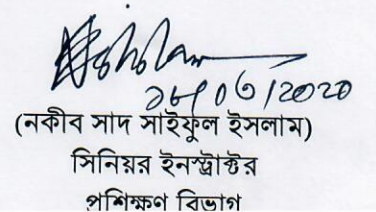 (নকীব সাদ সাইফুল ইসলাম)
সিনিয়র ইনস্ট্রাক্টর
প্রশিক্ষণ বিভাগ